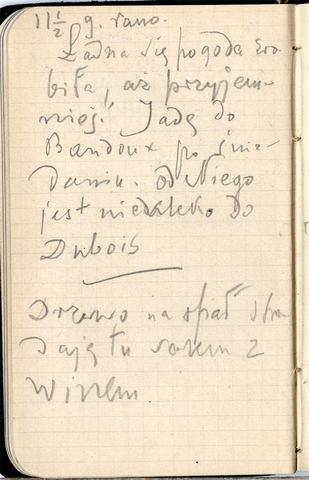 11 1/2 g. rano.
Ładna się pogoda zro-
biła, aż przyjem-
ność! Jadę do
Bandoux po śnia-
daniu. Od Niego
jest niedaleko do
Dubois
Drzewo na opał
dają tu razem z